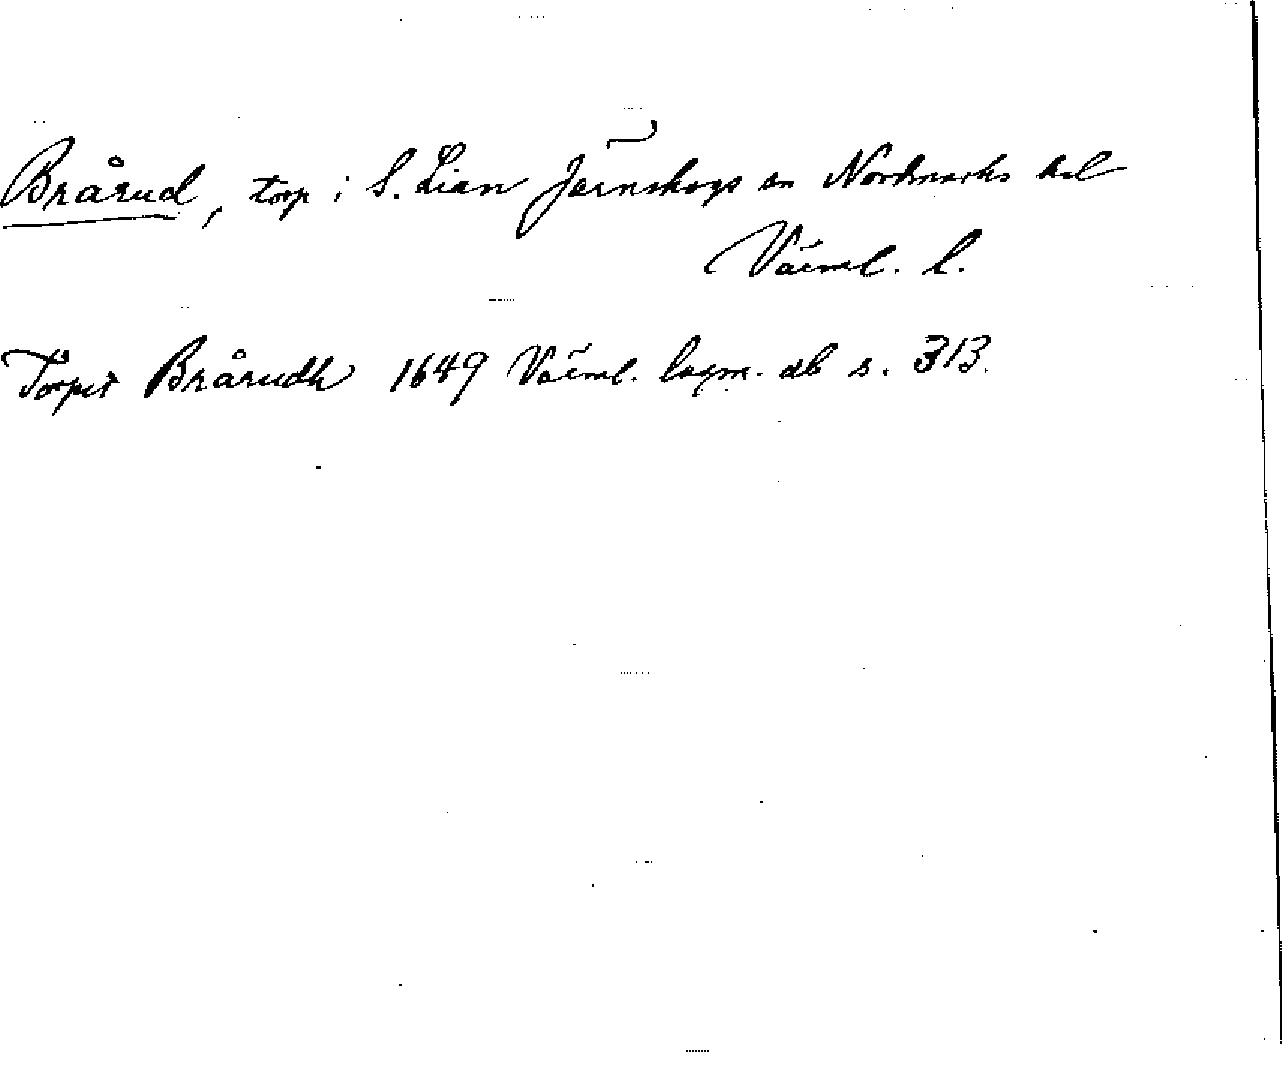 Brårud, torp i S. Lian Järnskogs sn Nordmarks hd
Värml. l.
Torpet Brårudh 1649 Värml. lagm. db s. 313.